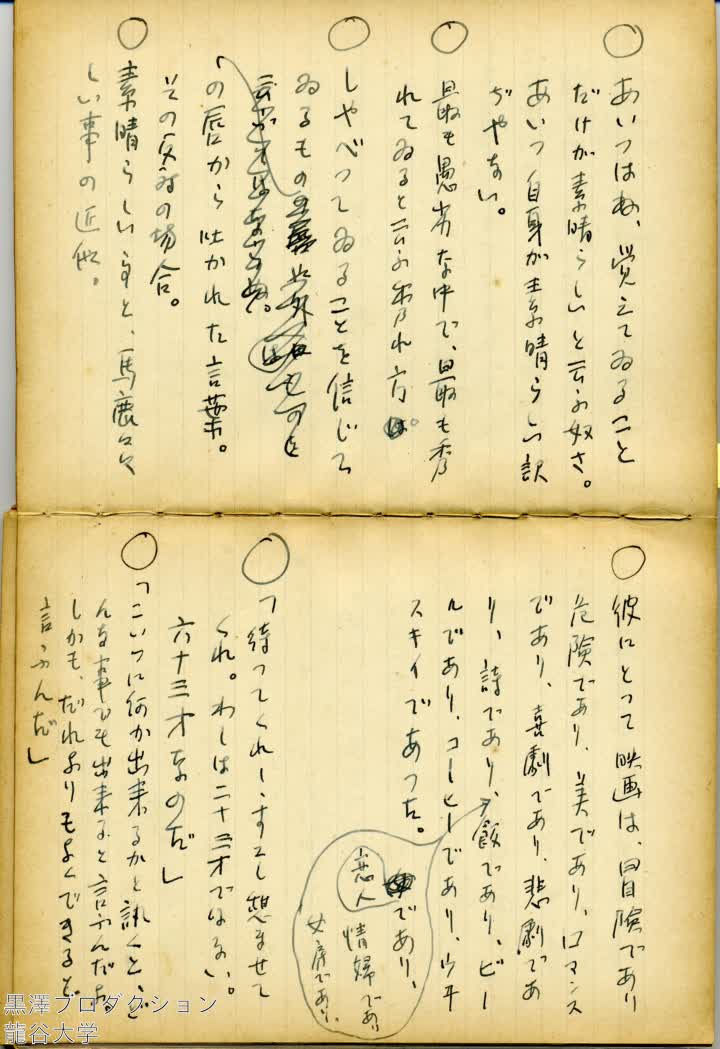 ○
あいつはね、覚えてゐること
だけが素晴らしいと云ふ奴さ。
あいつ自身が素晴らしい訳
ぢやない。
○
最も愚劣な中で、最も秀
れてゐると云ふ
○
しやべつてゐることを信じて
ゐるもの
の唇から吐かれた言葉。
その反対の場合。
○
素晴らしい事と、馬鹿々々
しい事の近似。
○
彼にとつて映画は、冒険であり
危険であり、美であり、ロマンス
であり、喜劇であり、悲劇であ
り、詩であり、飯であり、ビー
ルであり、コーヒーであり、ウヰ
スキイであつた。
恋人
であり、
情婦であり
女房であり、
○
「待つてくれ!、すこし想ませて
くれ。わしは二十三才ではない。
六十三才なのだ」
○
「こいつに何か出来るかと訊くと、ど
んな事でも出来ると言ふんだよ
しかも、だれよりもよくできると。
言ふんだ」
黒澤プロダクション
龍谷大学